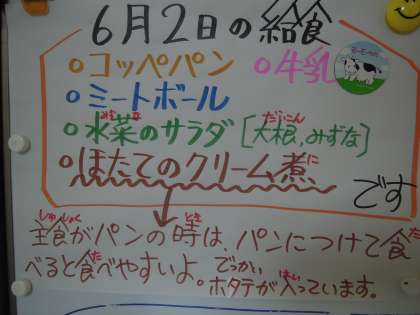 6月2日の給食
○コッペパン ○牛乳
○ミートボール
○水菜のサラダ [大根,みずな]
○ほたてのクリーム煮
です
主食がパンの時は、パンにつけて食
べると食べやすいよ。でっかい
ホタテが入っています。